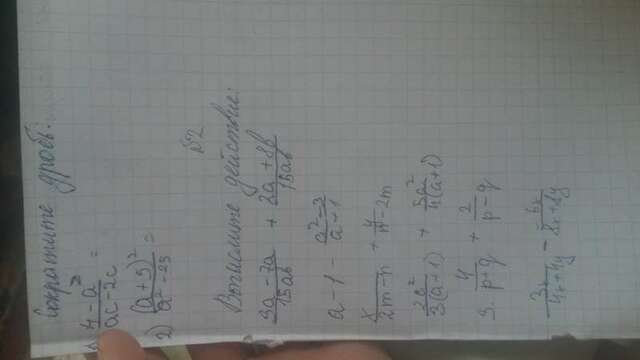 Сократите дробь:
1) (4 - a²)/(ac - 2c) =
2) (a + 5)²/(a² - 25) =
№2
Выпислите действие:
(3a - 7a)/(15ab) + (2a + 8b)/(15ab)
a - 1 - (a² - 3)/(a + 1)
x/(2m - n) + y/(n - 2m)
2c²/(3(a + 1)) + 5a²/(4(a + 1))
3. 4/(p + q) + 2/(p - q)
3x/(4x + 4y) - 6x/(8x + 8y)